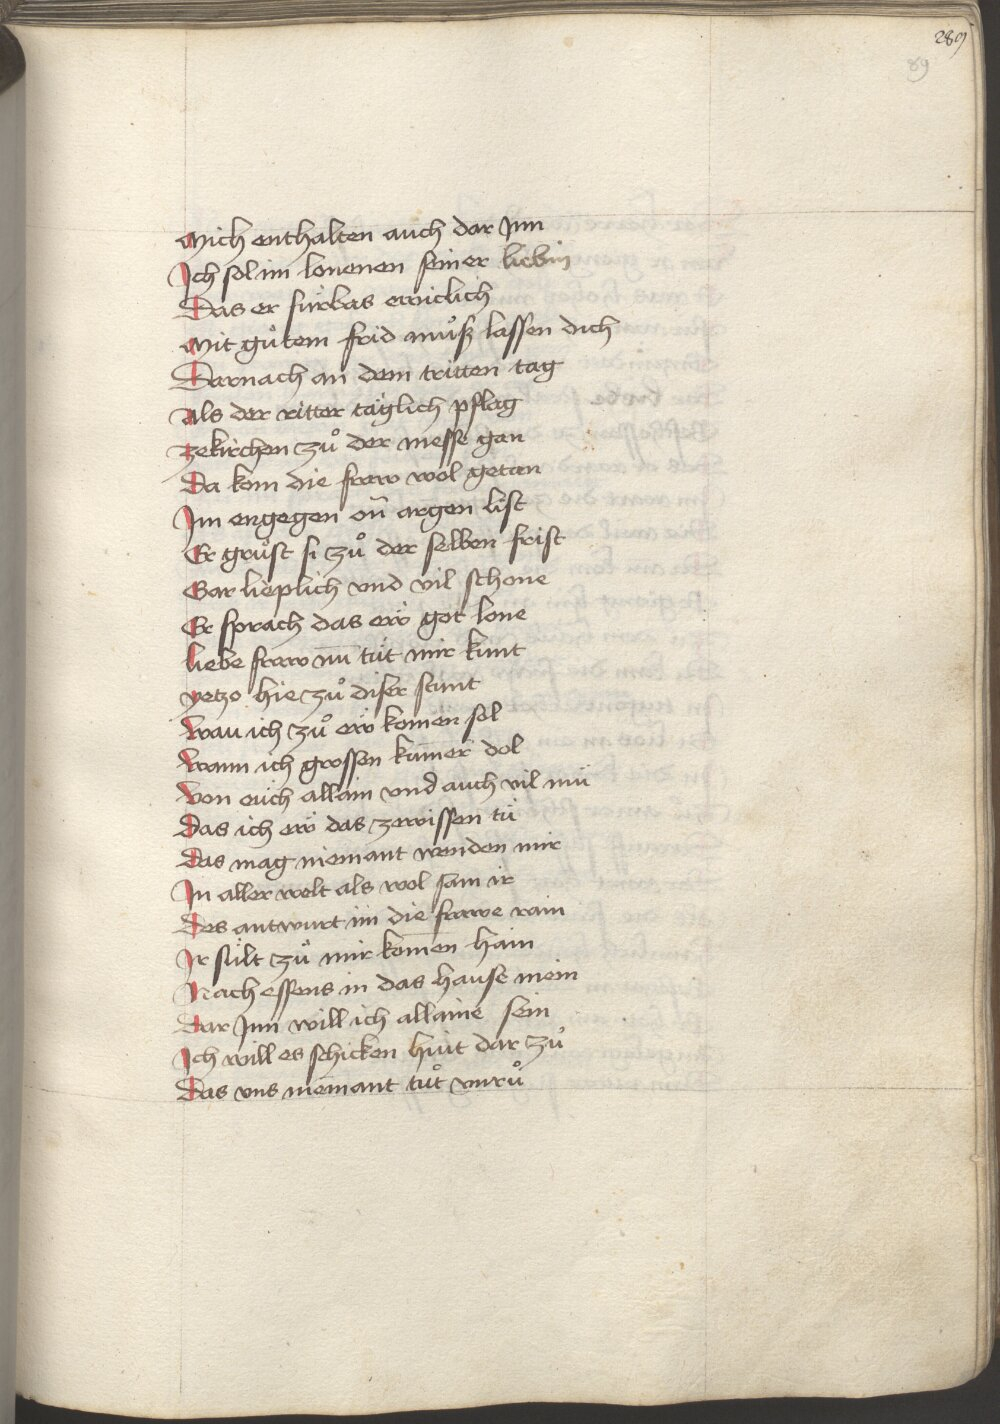 289
89
Mich enthalten auch dar Jnn
Jch sol im lonenen seiner liebin
Das er fürbas ewiclich
Mit gůtem frid můsz lassen dich
Darnach an dem tritten tag
Als der ritter täglich pflag
Zekirchen zů der messe gan
Da kom die fraw wol getan
Jm engegen on argen list
Er grüst si zů der selben frist
Gar lieplich vnd vil schone
Er sprach das eẅ got lone
liebe fraw nū tüt mir kunt
yetzo hie zů diser stunt
Wau ich zů eẅ komen sol
Wann ich grossen kum̄er dol
Von euch allain vnd auch vil mü
Das ich eẅ das zewissen tü
Das mag niemant wenden mir
Jn aller welt als wol sam ir
Des antwurt im die frawe rain
Jr sült zů mir kom̄en hain
Nach essens in das hause mein
Dar Jnn will ich allaine sein
Jch will es schicken hiut dar zů
Das vns niemant tůt vnrů